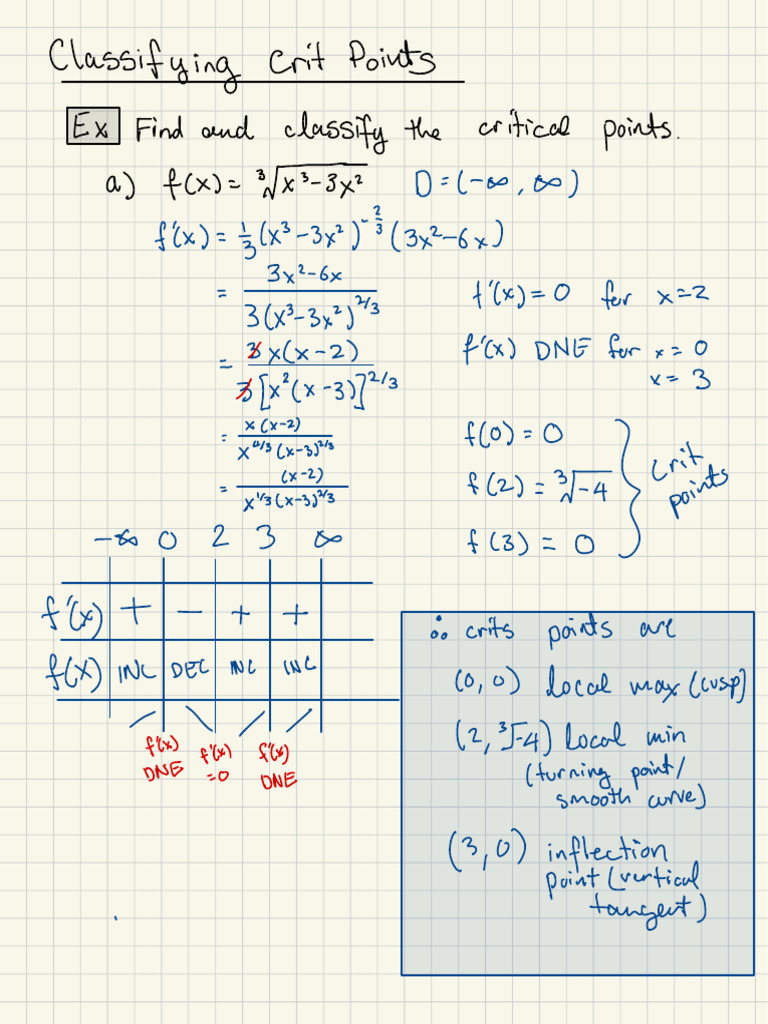 Classifying Crit Points
Ex Find and classify the critical points.
a) f(x) = ∛(x³-3x²) D = (-∞, ∞)
f'(x) = 1/3 (x³-3x²)^(-2/3) (3x²-6x)
= (3x²-6x) / (3(x³-3x²)^(2/3))
= 3x(x-2) / (3[x²(x-3)]^(2/3))
= x(x-2) / (x^(4/3) (x-3)^(2/3))
= (x-2) / (x^(1/3) (x-3)^(2/3))
f'(x) = 0 for x = 2
f'(x) DNE for x = 0
x = 3
f(0) = 0
f(2) = ∛-4
f(3) = 0
crit
points
-∞ 0 2 3 ∞
f'(x) + - + +
f(x) INC DEC INC INC
f'(x)
DNE
f'(x)
=0
f'(x)
DNE
∴ crits points are
(0, 0) local max (cusp)
(2, ∛-4) local min
(turning point/
smooth curve)
(3, 0) inflection
point (vertical
tangent)